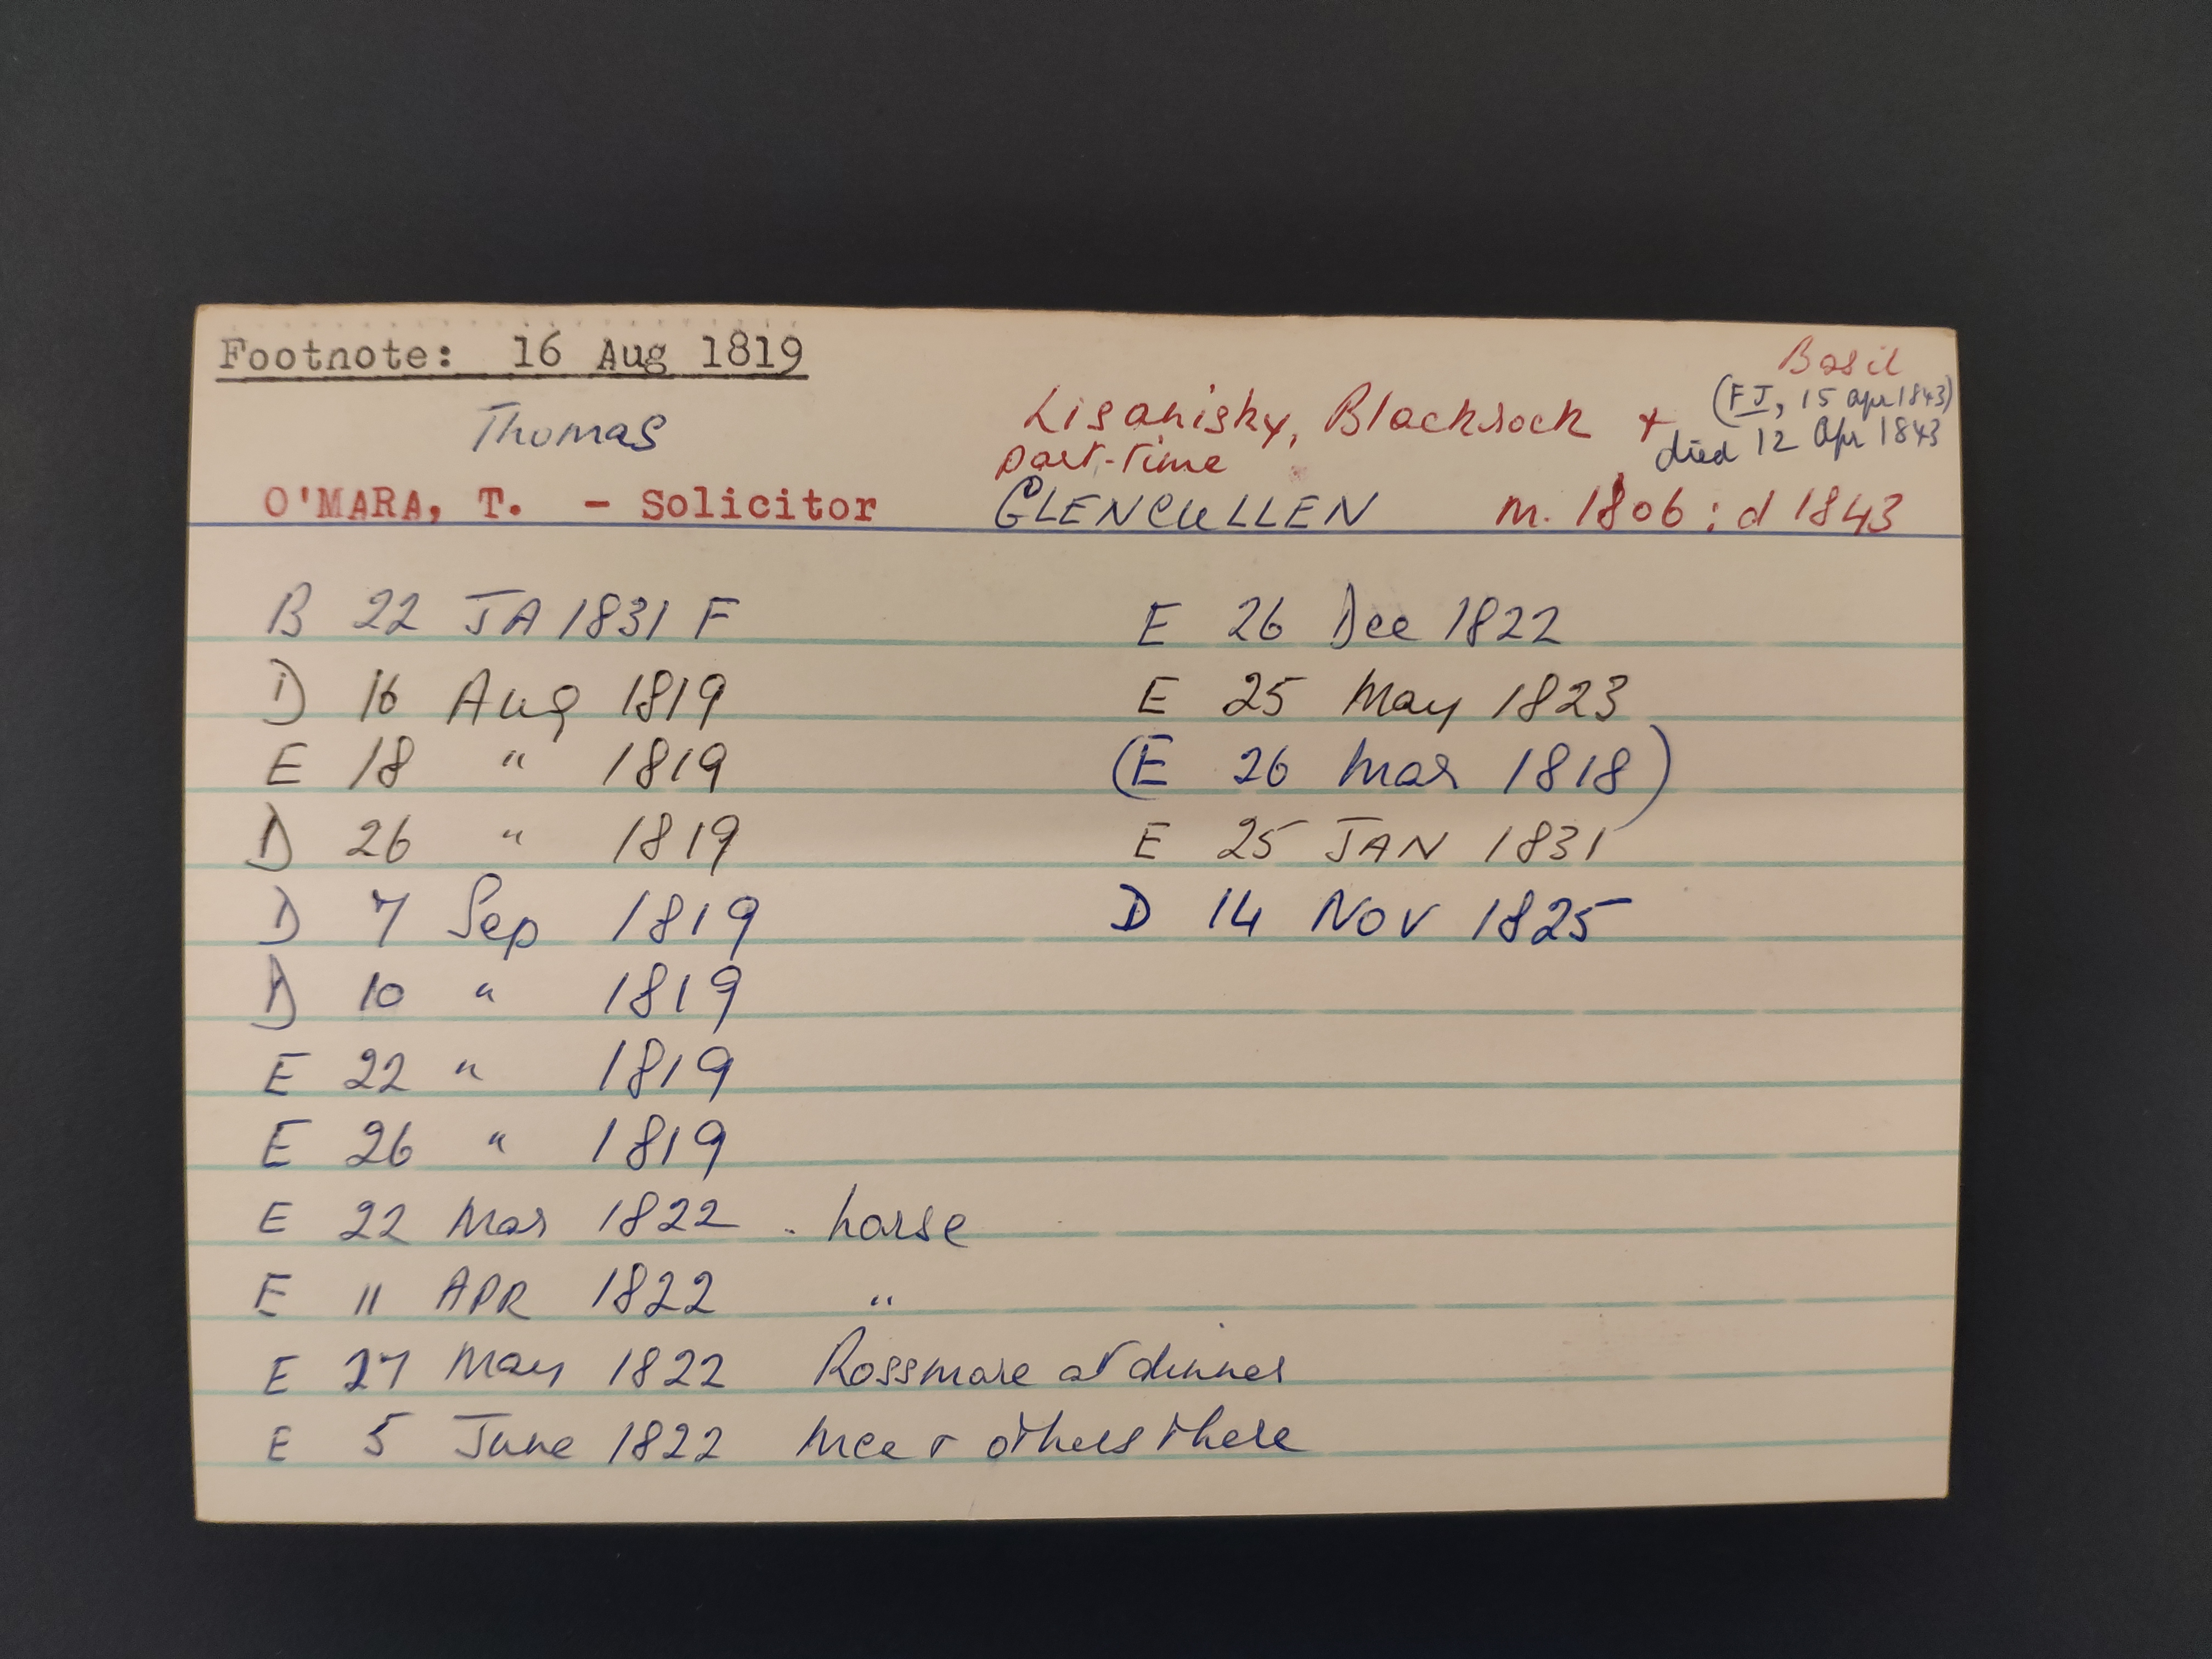 Footnote: 16 Aug 1819
Basil
(FJ, 15 Apr 1843)
Thomas
Lisanisky, Blackrock +
died 12 Apr 1843
part-time
O'MARA, T. - Solicitor
GLENCULLEN m. 1806 : d 1843
B 22 JA 1831 F
D 16 Aug 1819
E 18 " 1819
D 26 " 1819
D 7 Sep 1819
D 10 " 1819
E 22 " 1819
E 26 " 1819
E 22 Mar 1822 . horse
E 11 APR 1822 "
E 27 May 1822 Rossmore at dinner
E 5 June 1822 Mce + others there
E 26 Dec 1822
E 25 May 1823
(E 26 Mar 1818)
E 25 JAN 1831
D 14 NOV 1825